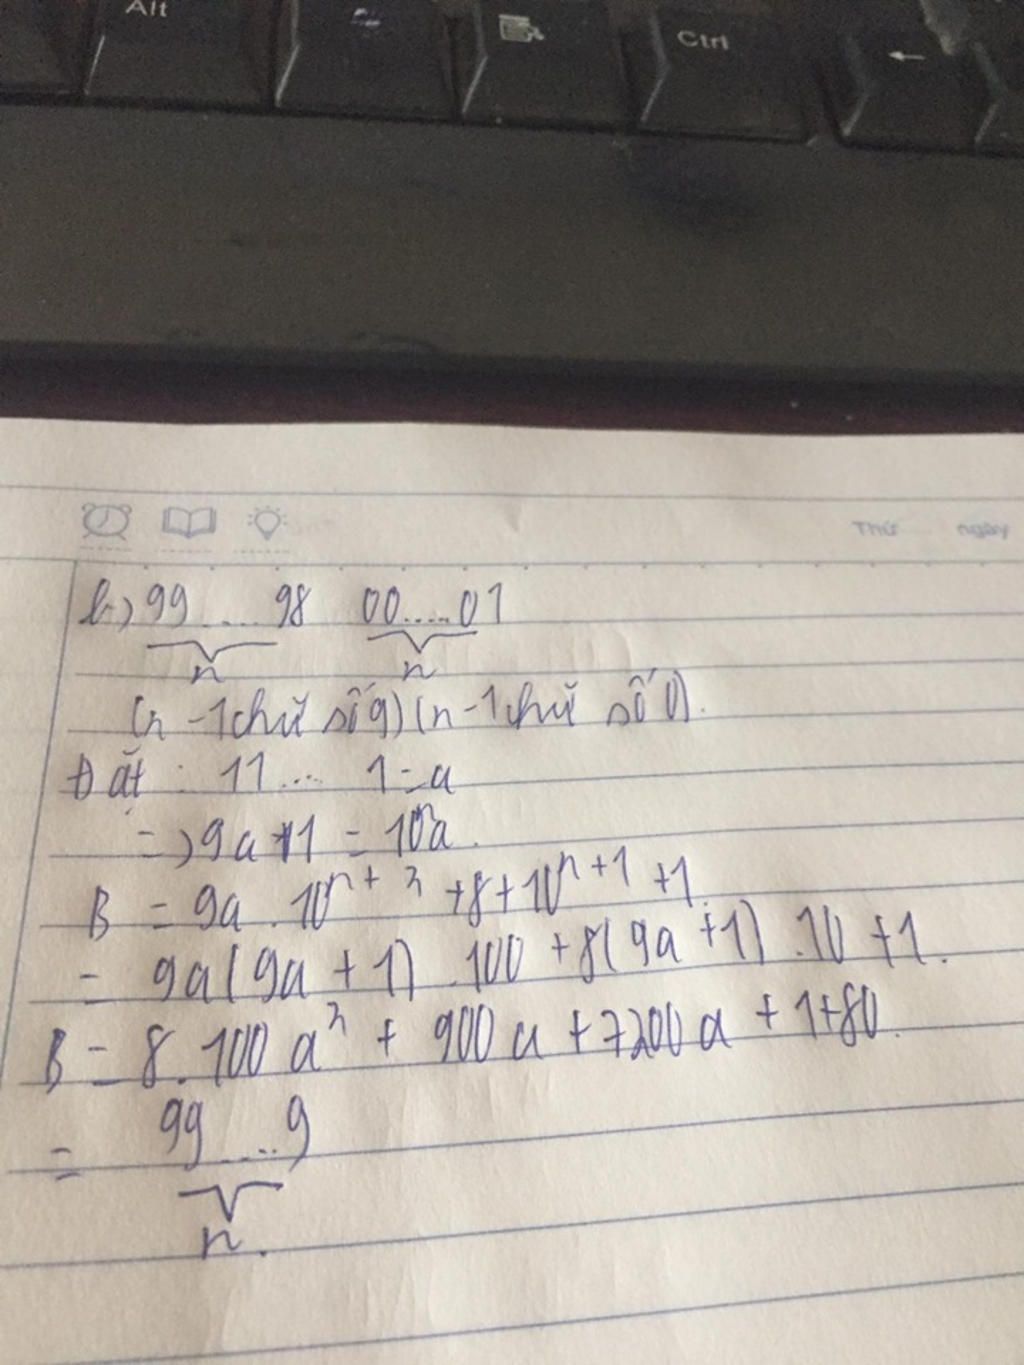 Alt
Ctrl
←
Thứ ngày
b) 99....98 00.....01
n n
(n - 1 chữ số 9) (n - 1 chữ số 0).
Đặt : 11... 1 = a
=> 9a + 1 = 10ⁿa.
B = 9a . 10ⁿ⁺² + 8 + 10ⁿ⁺¹ + 1.
= 9a(9a + 1) . 100 + 8(9a + 1) . 10 + 1.
B = 8.100a² + 900a + 7200a + 1 + 80.
= 99....9
n.